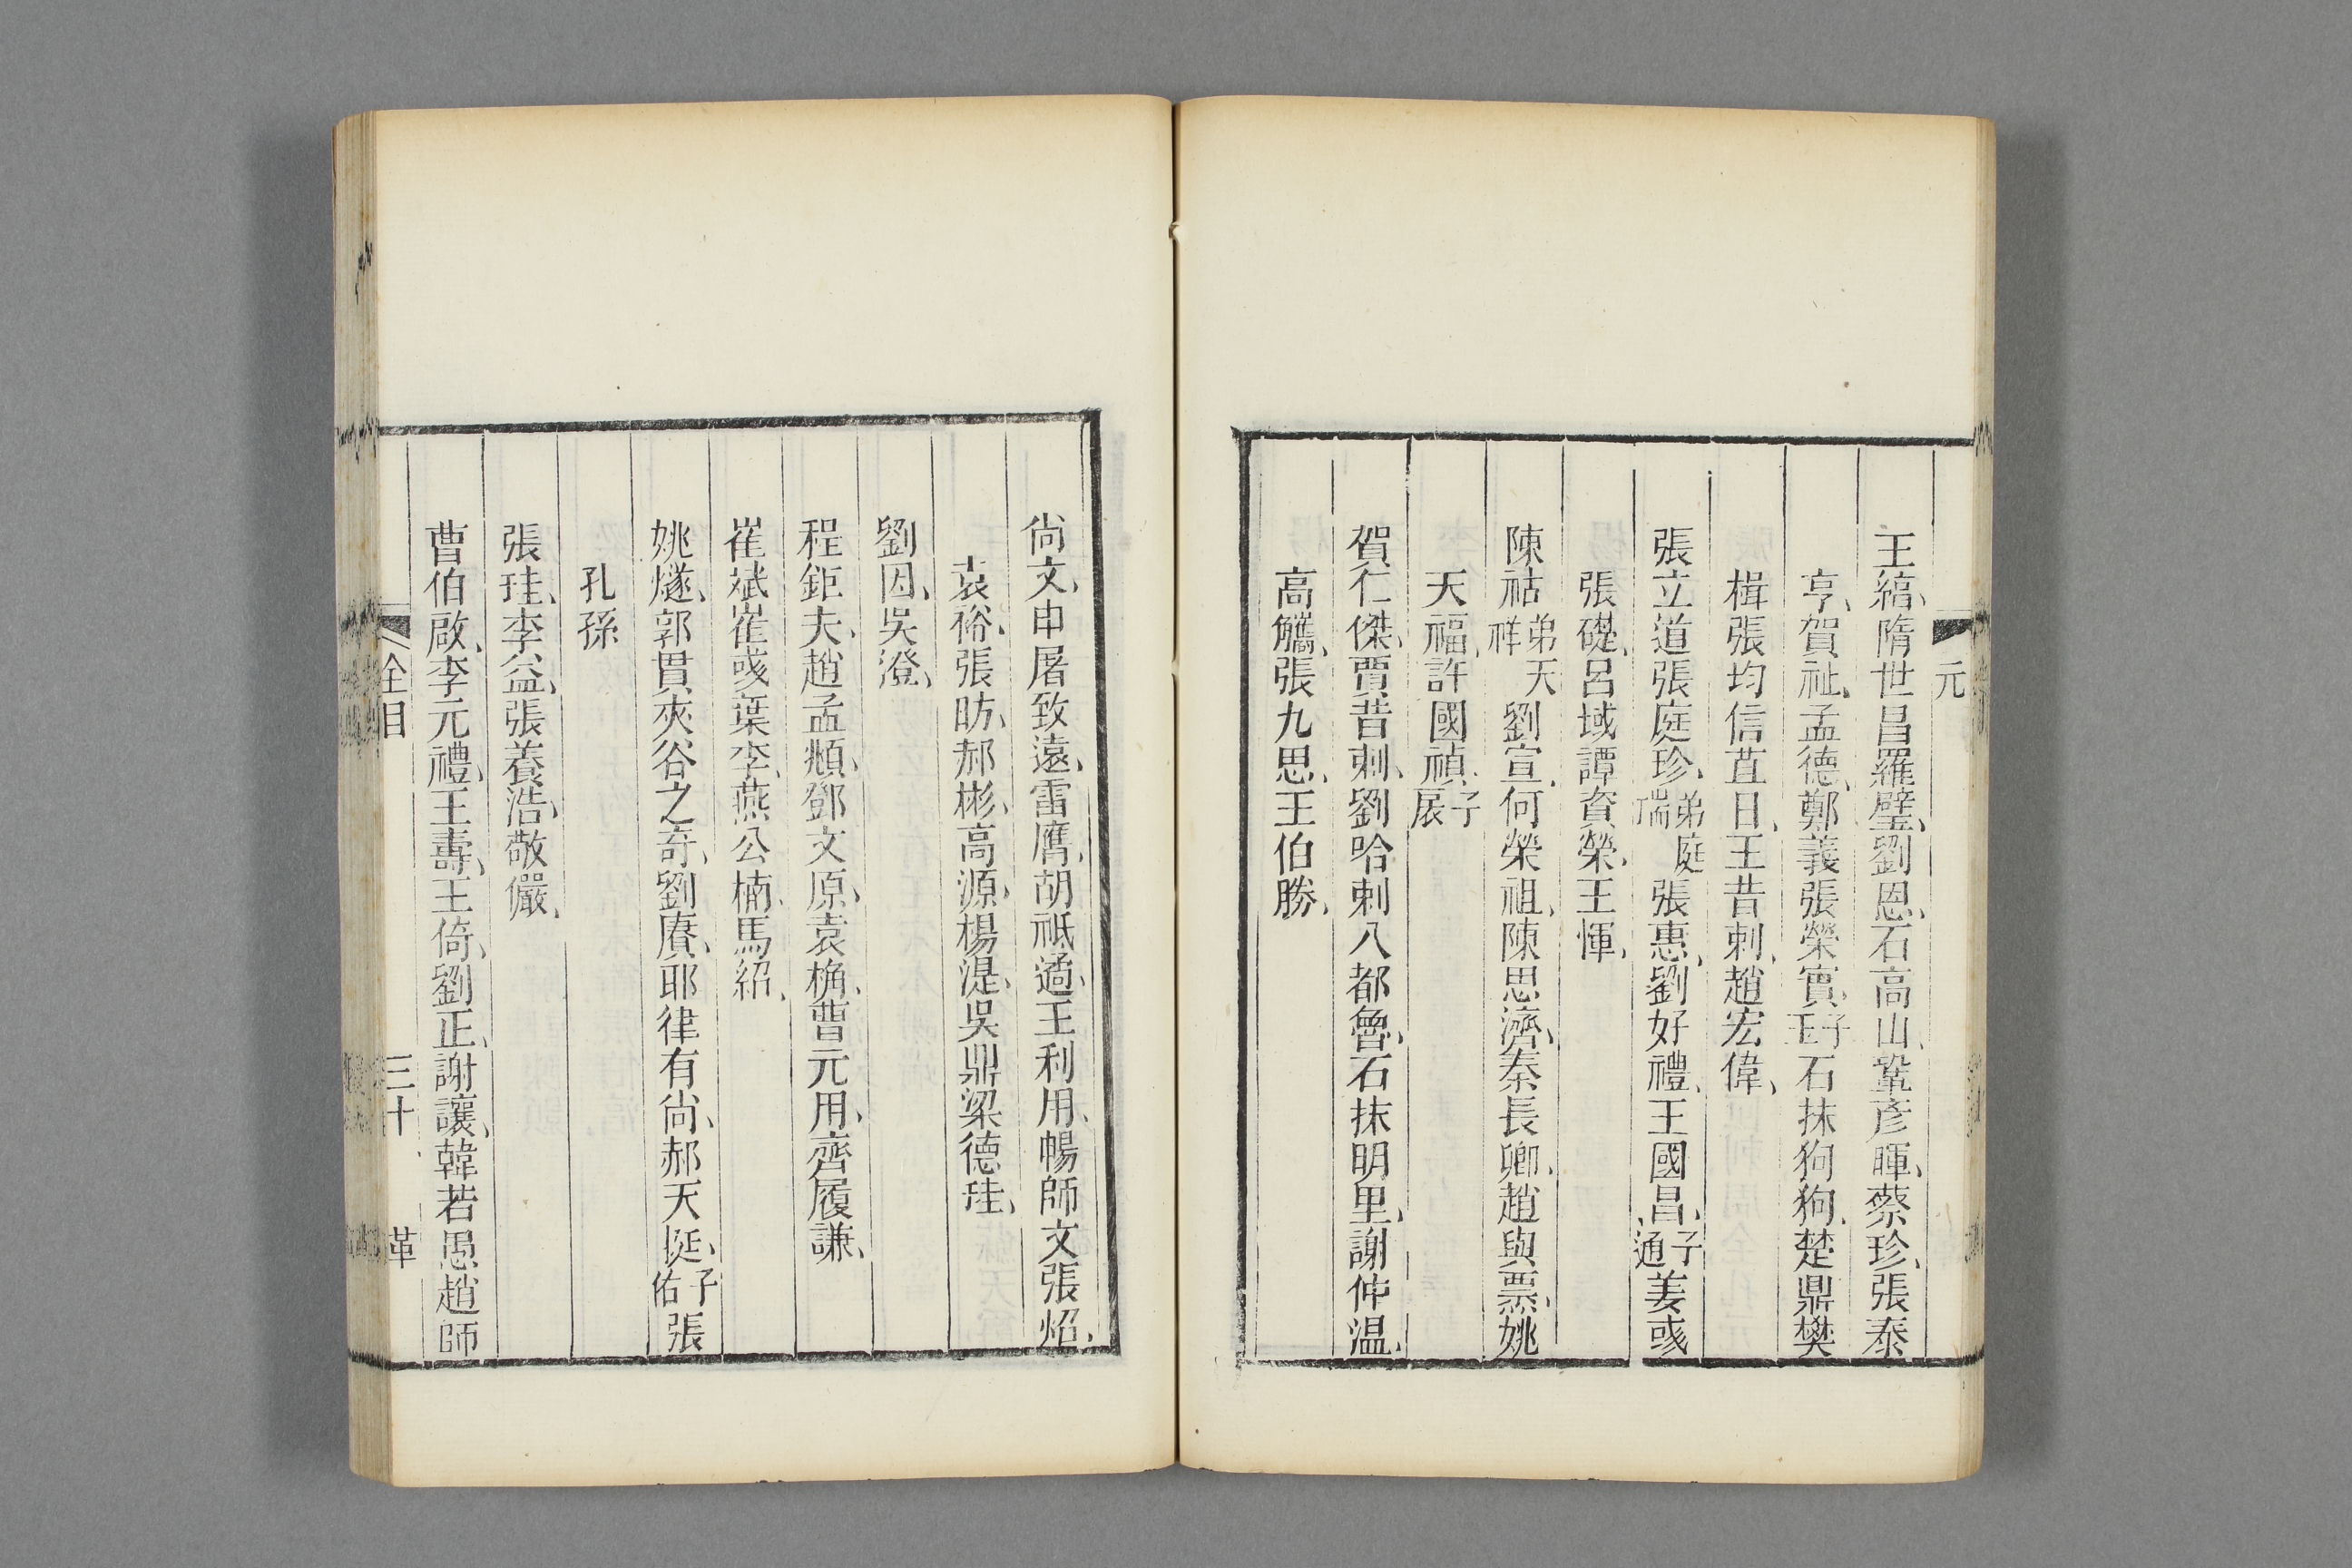 元
王縞隋世昌羅璧劉恩石高山鞏彥暉蔡珍張泰
亨賀祉孟德鄭義張榮實子玉石抹狗狗楚鼎樊
楫張均信苴日王昔剌趙宏偉
張立道張庭珍弟庭瑞張惠劉好禮王國昌子通姜彧
張礎呂㙺譚資榮王惲
陳祐弟天祥劉宣何榮祖陳思濟秦長卿趙與票姚
天福許國禎子扆
賀仁傑賈昔剌劉哈剌八都魯石抹明里謝仲温
高觿張九思王伯勝
尚文申屠致遠雷膺胡祗遹王利用暢師文張炤
袁裕張昉郝彬高源楊湜吳鼎梁德珪
劉因吳澄
程鉅夫趙孟頫鄧文原袁桷曹元用齊履謙
崔斌崔彧葉李燕公楠馬紹
姚燧郭貫夾谷之奇劉賡耶律有尚郝天挺子佑張
孔孫
張珪李益張養浩敬儼
曹伯啟李元禮王壽王倚劉正謝讓韓若愚趙師
全目
三十
革